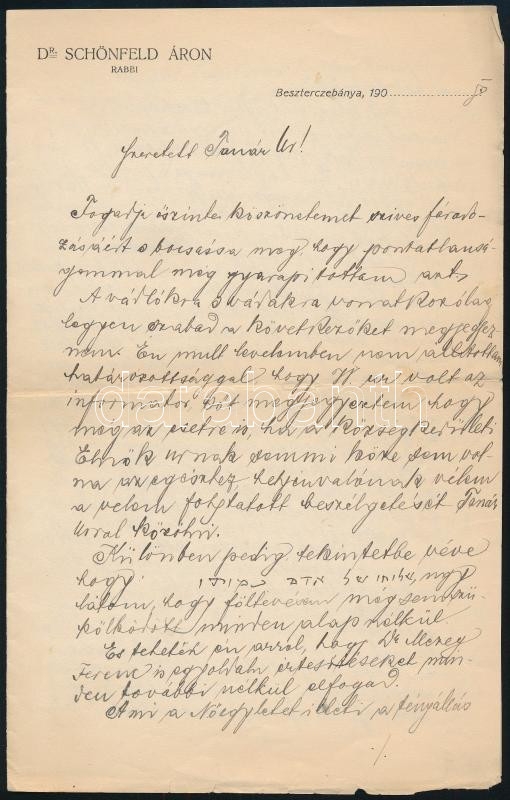 DR. SCHÖNFELD ÁRON
RABBI
Beszterczebánya, 190
Szeretett Tanár Úr!
Fogadja őszinte köszönetemet szives fárado-
zásáért s bocsássa meg, hogy pontatlansá-
gommal még gyarapitottam azt.
A vádlókra s vádakra vonatkozólag
legyen szabad a következőket megjegyez-
nem. Én mult levelemben nem állitottam
határozottsággal, hogy W úr volt az
informátor, sőt megjegyeztem, hogy
még az esetre is, ha a község
Elnök urnak semmi köze sem vol-
na az egészhez, helyénvalónak vélem
a velem folytatott beszélgetését Tanár
Urral közölni.
Különben pedig tekintetbe véve
hogy שלוחו של אדם כמותו, ugy
látom, hogy föltevésem mégsem szü-
kölködött minden alap nélkül.
És tehetek én arról, hogy Dr Mezey
Ferenc is egyoldalu értesitéseket min-
den további nélkül elfogad.
Ami a Nőegyletet illeti a tényállás
./.
darabanth